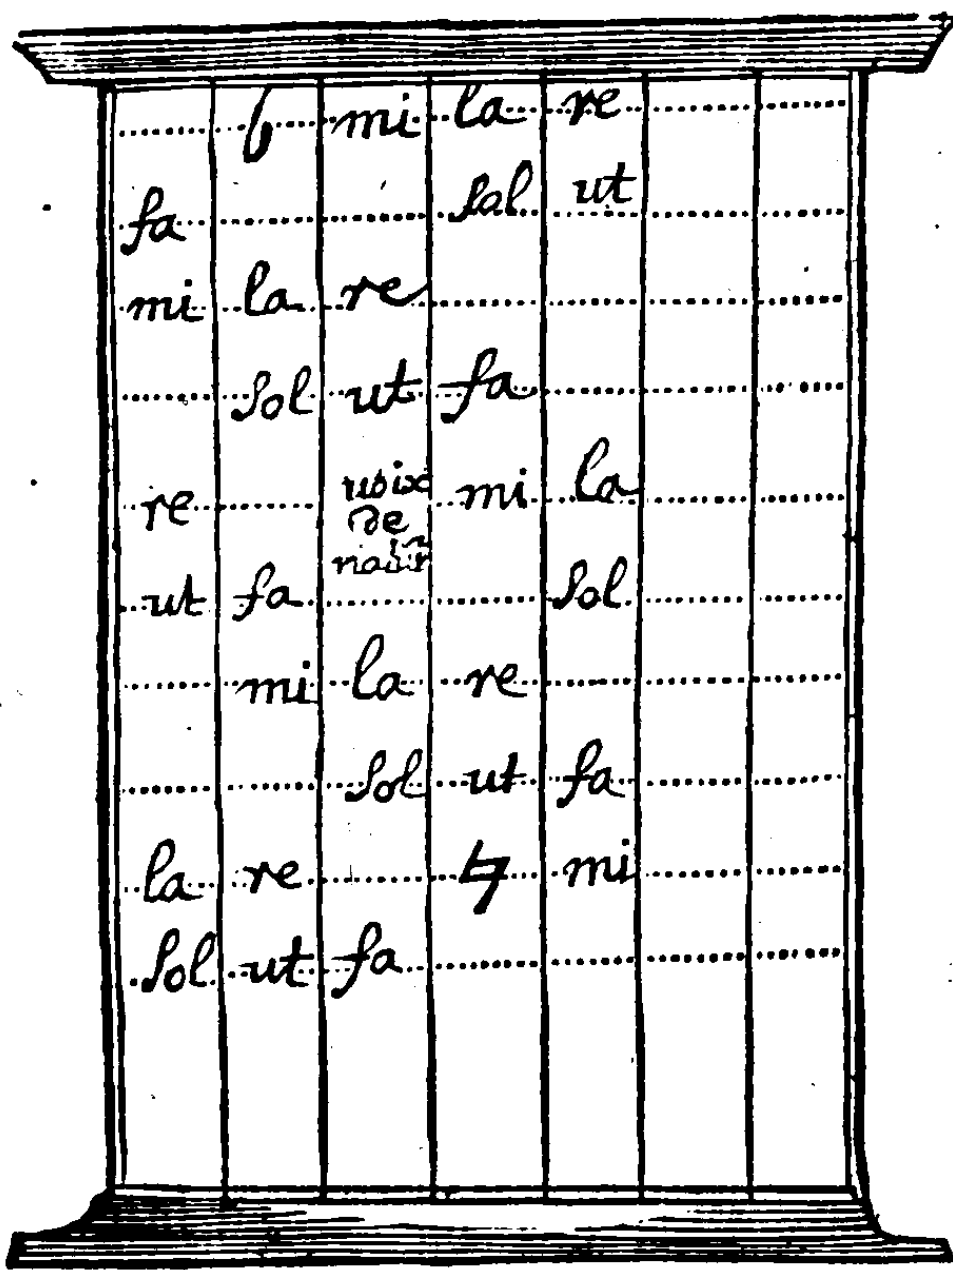 ♭ mi la re
fa sol ut
mi la re
sol ut fa
re voix mi la
de
ut fa sol
mi la re
sol ut fa
la re ♮ mi
sol ut fa